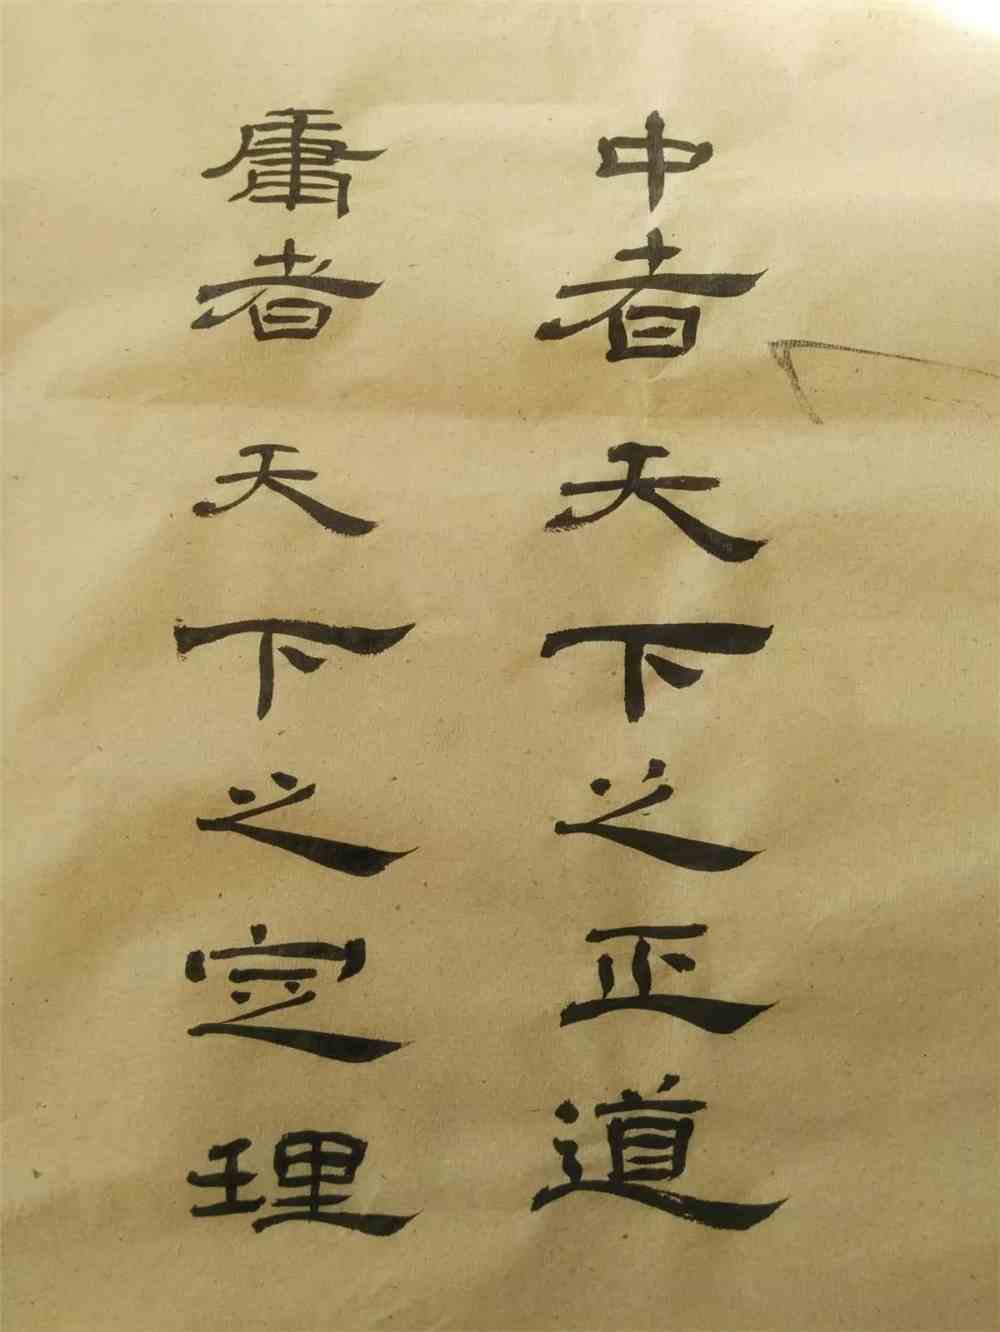 中者天下之正道
庸者天下之定理